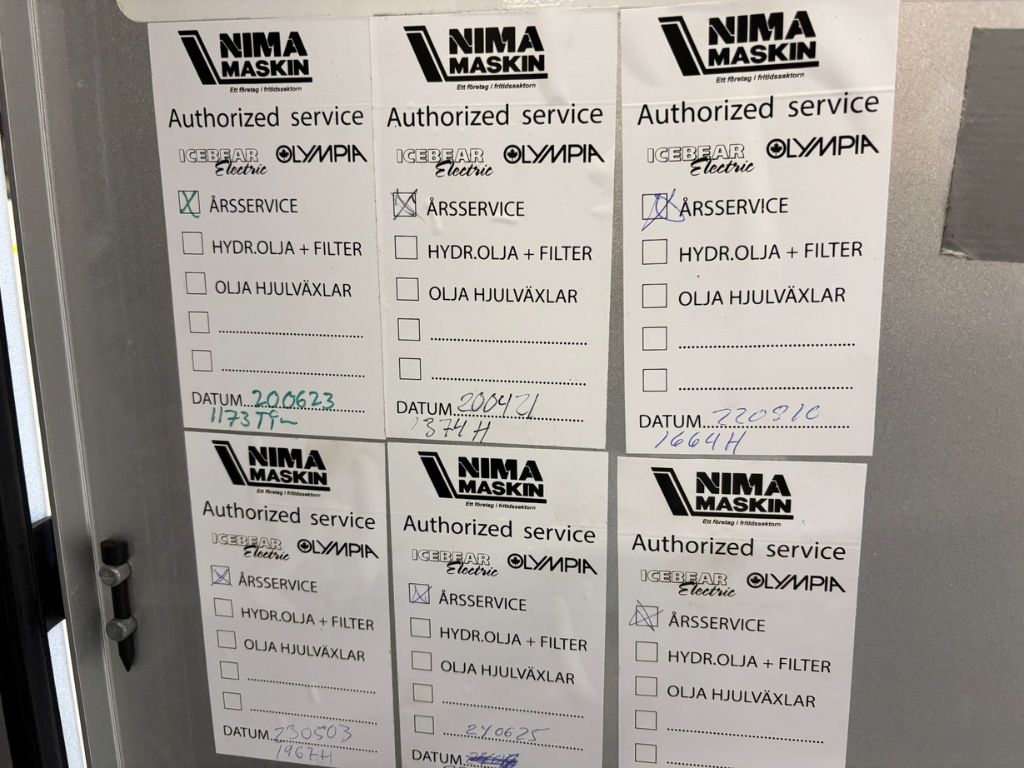 NIMA
MASKIN
Ett företag i fritidssektorn
Authorized service
ICEBEAR OLYMPIA
Electric
ÅRSSERVICE
HYDR.OLJA + FILTER
OLJA HJULVÄXLAR
DATUM 200623
1173
NIMA
MASKIN
Ett företag i fritidssektorn
Authorized service
ICEBEAR OLYMPIA
Electric
ÅRSSERVICE
HYDR.OLJA + FILTER
OLJA HJULVÄXLAR
DATUM
1374 H
NIMA
MASKIN
Ett företag i fritidssektorn
Authorized service
ICEBEAR OLYMPIA
Electric
ÅRSSERVICE
HYDR.OLJA + FILTER
OLJA HJULVÄXLAR
DATUM 220810
1664 H
NIMA
MASKIN
Ett företag i fritidssektorn
Authorized service
ICEBEAR OLYMPIA
Electric
ÅRSSERVICE
HYDR.OLJA + FILTER
OLJA HJULVÄXLAR
DATUM 230503
1967 H
NIMA
MASKIN
Ett företag i fritidssektorn
Authorized service
ICEBEAR OLYMPIA
Electric
ÅRSSERVICE
HYDR.OLJA + FILTER
OLJA HJULVÄXLAR
240625
DATUM
NIMA
MASKIN
Ett företag i fritidssektorn
Authorized service
ICEBEAR OLYMPIA
Electric
ÅRSSERVICE
HYDR.OLJA + FILTER
OLJA HJULVÄXLAR